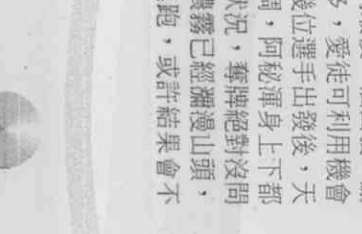 多，愛徒可利用機會
幾位選手出發後，天
調，阿秘渾身上下都
狀況，奪牌絕對沒問
霧已經瀰漫山頭，
跑，或許結果會不